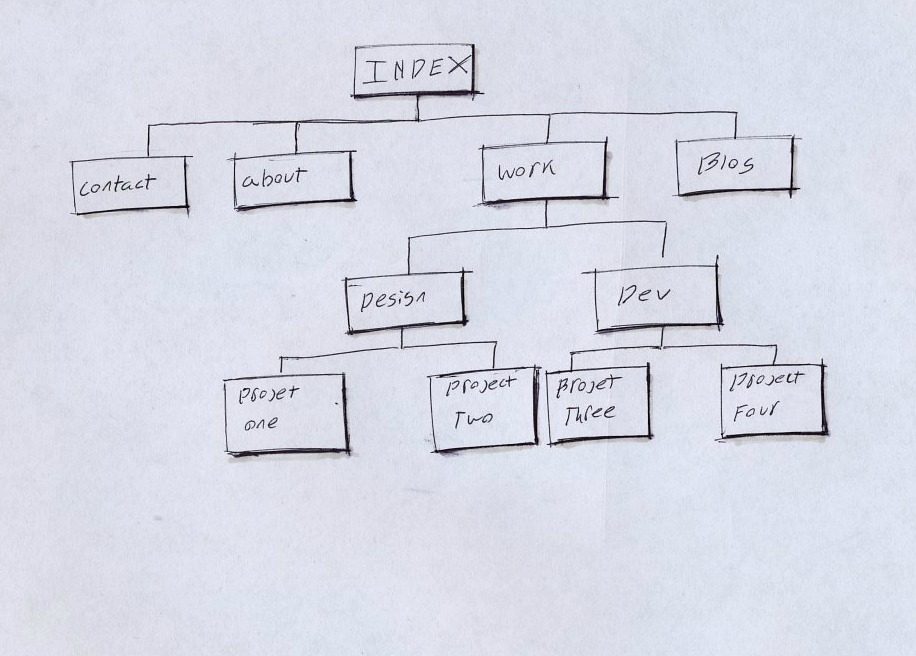 INDEX
contact
about
work
Blog
Design
Dev
Projet
one
Project
Two
Projet
Three
Project
Four